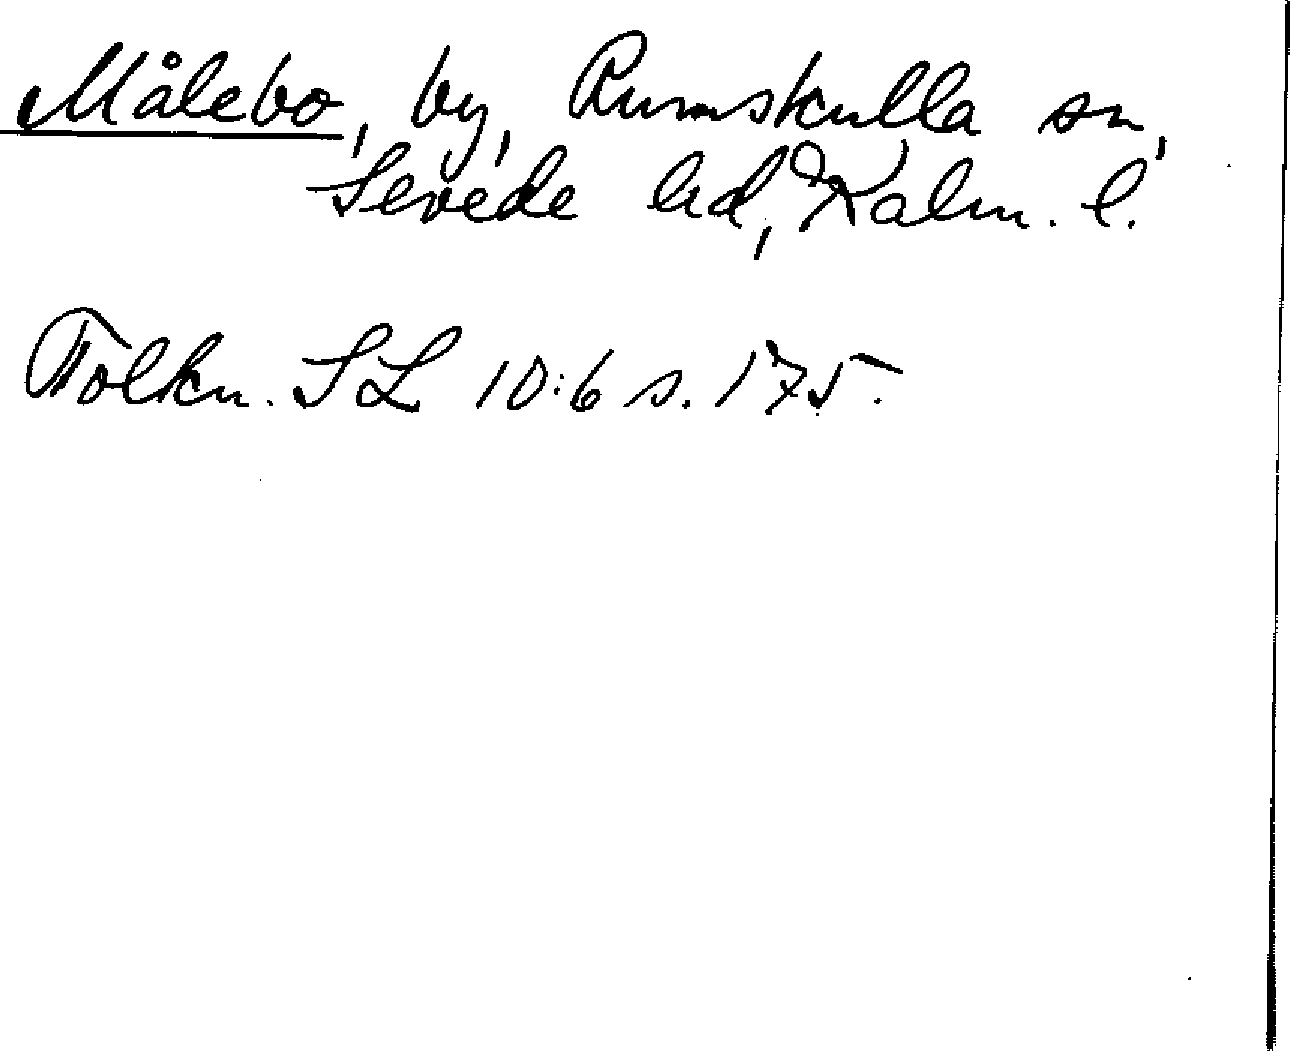 Målebo, by, Rumskulla sn,
Sevede hd, Kalm. l.
Folkn. SL 10:6 s. 175.